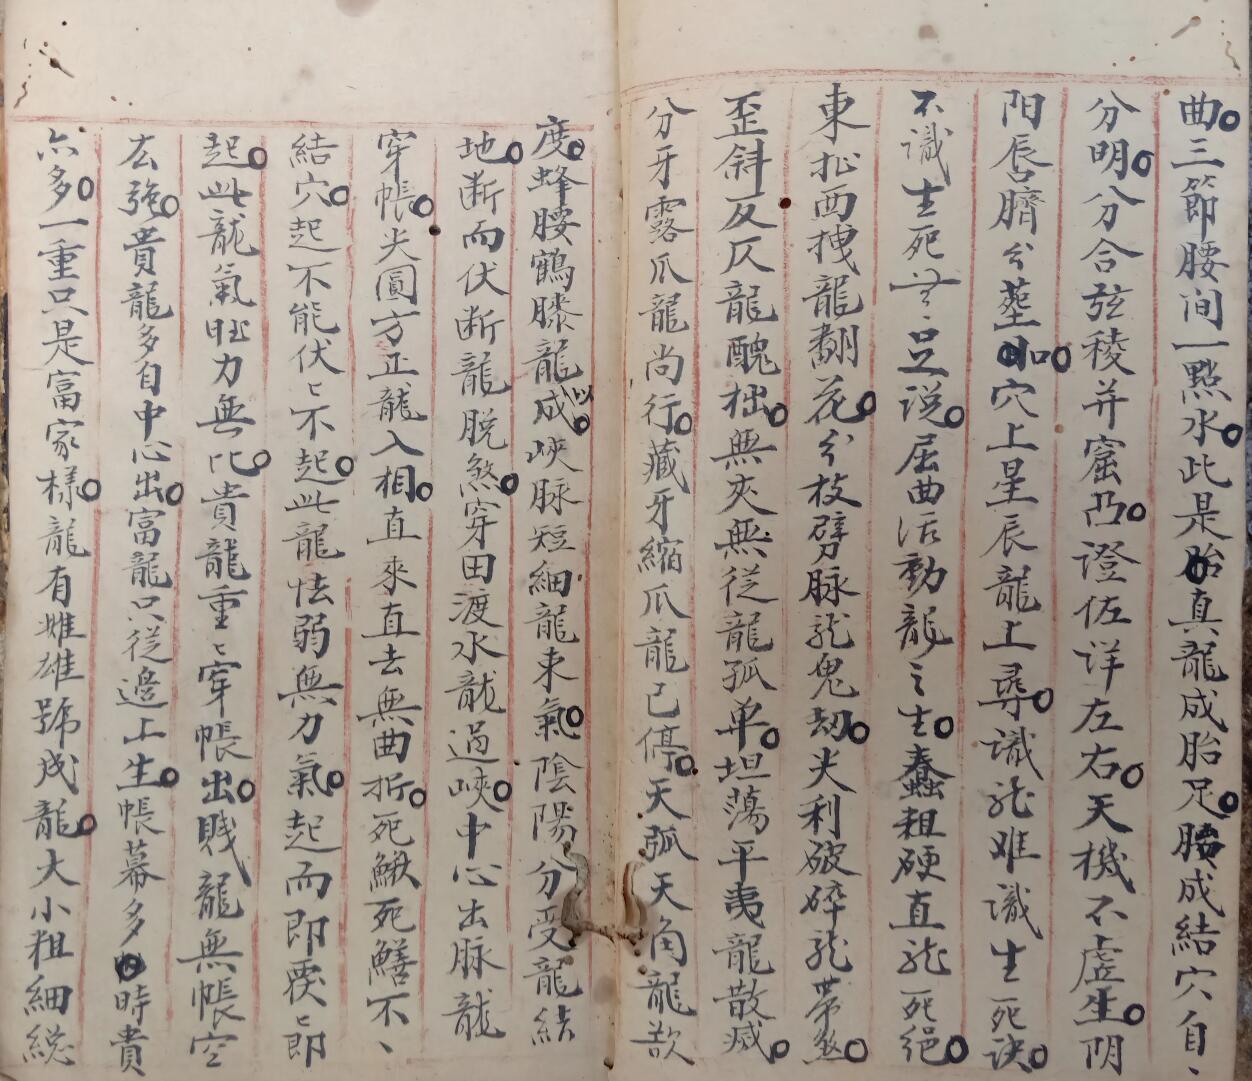 曲三節腰间一點水此是胎真龍成胎足胎成結穴自、
分明分合弦稜并窟凸證佐详左右天機不虚生阴
阳辰唇臍分塟口穴上星辰龍上尋識龙难識生死诀
不識生死皆、妄说屈曲活動龍之生蠢粗硬直龙死绝
東扯西拽龍翻花分枝劈脉龙鬼劫尖利破碎龙带煞
歪斜反仄龍醜拙無夾無從龍孤单坦蕩平夷龍散
分牙露爪龍尚行藏牙縮爪龍已停天弧天角龍欲
度蜂腰鶴膝龍成峽脉短細龍束氣陰陽分受龍結
地断而伏断龍脱煞穿田渡水龍過峽中心出脉龍
穿帳尖圓方正龍入相直來直去無曲折死鰍死鱔不、
結穴起不能伏ヒ不起此龍怯弱無力氣起而即伏ヒ即
起此龍氣旺力無比貴龍重ヒ穿帳出賤龍無帳空
太強貴龍多自中心出富龍只從邊上生帳幕多時貴
亦多一重只是富家樣龍有雌雄號成龍大小粗細総